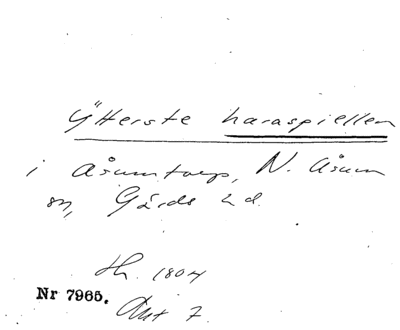 Ytterste haraspiellen
i Åsumtorp, N. Åsum
sn, Gärds hd.
Sk. 1804
Nr 7965.
Akt 7